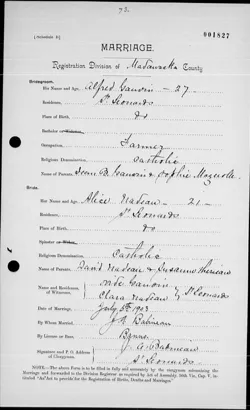 73.
001827
MARRIAGE.
Registration Division of Madawaska County
Bridegroom.
His Name and Age, Alfred Gauvin - 27
Residence, St Leonards
Place of Birth, do
Bachelor or Widower,
Occupation, Farmer
Religious Denomination, Catholic
Name of Parents, B. Gauvin & Sophie
Bride.
Her Name and Age, Alice Nadeau - 21 -
Residence, St Leonards
Place of Birth, do
Spinster or Widow,
Religious Denomination, Catholic
Name of Parents, David Nadeau & Suzanne
Name and Residence of Witnesses, Gauvin
Clara Nadeau St Leonards
Date of Marriage, July 6th 1903
By Whom Married, Babineau
By License or Banns, Banns
Signature and P. O. Address of Clergyman, Babineau
St Leonards
NOTE.—The above Form is to be filled in fully and accurately by the clergyman solemnizing the Marriage and forwarded to the Division Registrar as required by Act of Assembly,
"An Act to provide for the Registration of Births, Deaths and Marriages"